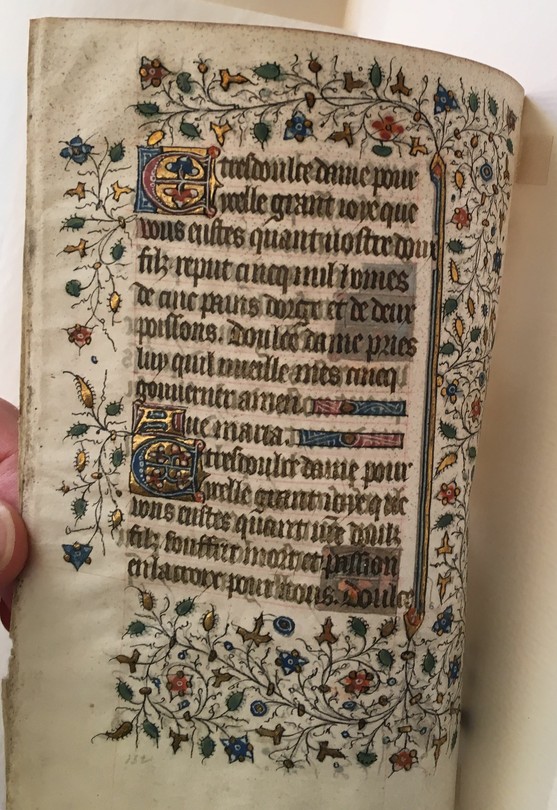 E tresdoulce dame pour
ycelle grant ioye que
vous eustes quant uostre doux
filz reput cincq mil homes
de cinc pains dorge et de deux
poissons. Doulce dame pries
luy quil vueille mes cincq
gouuerner amen
Aue maria.
E tresdoulce dame pour
ycelle grant ioye que
vous eustes quant
filz mort et passion
en la croix pour nous. Doulce